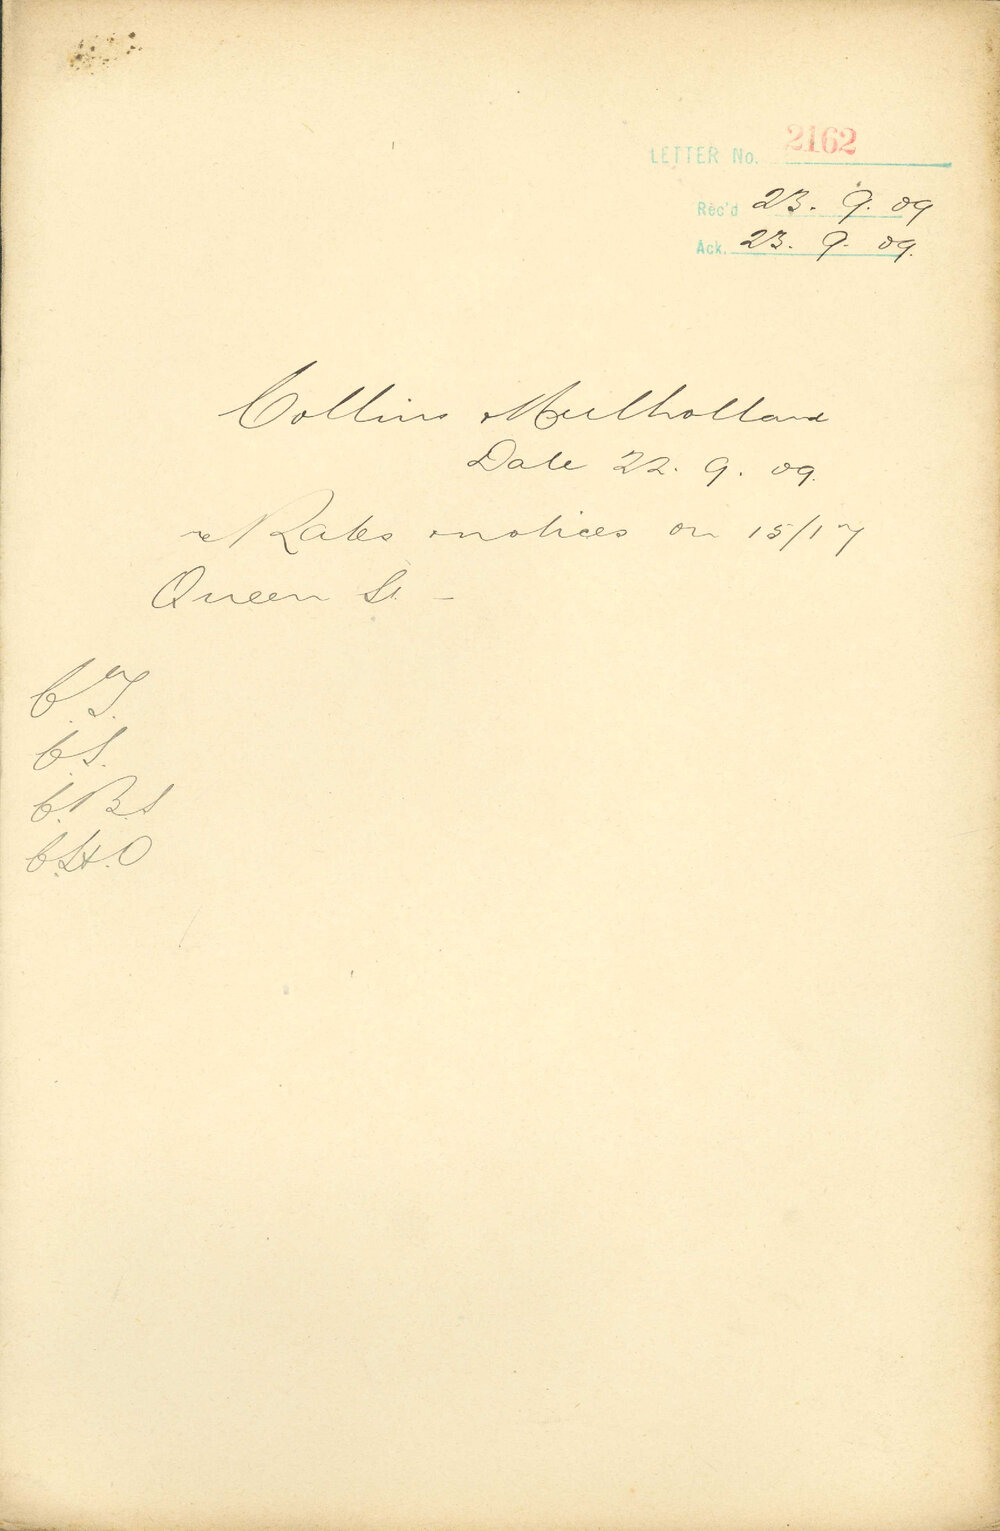 LETTER No. 2162
Rec'd 23. 9. 09
Ack. 23. 9. 09.
Collins Mulholland
Date 22. 9. 09.
re Rates & notices on 15/17
Queen St. –
C.T.
C.S.
C.B.S
C.H.O